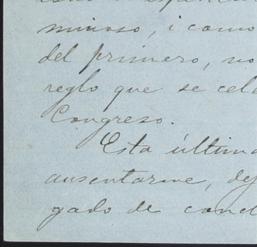 minoso, i como
del primero, no
reglo que se cel
Congreso.
Esta última
ausentarme, de
gado de concl